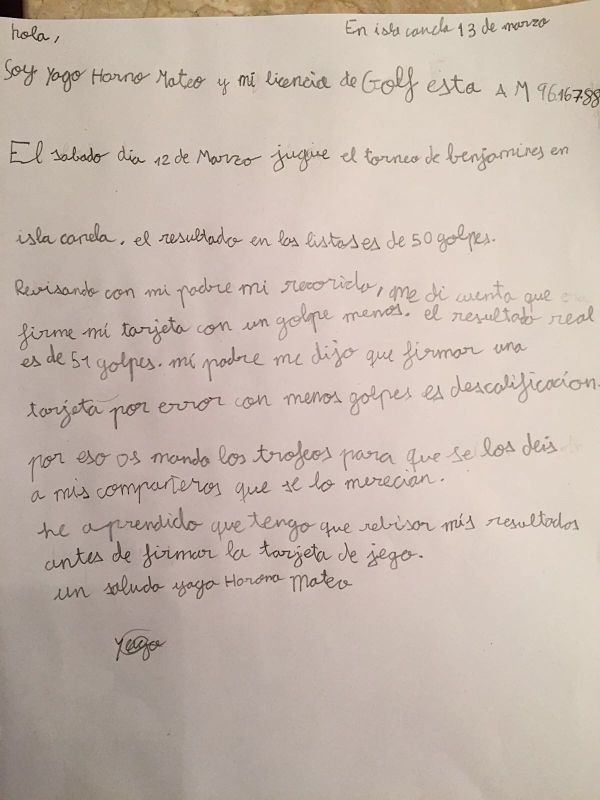 hola,
En isla canela 13 de marzo
Soy Yago Horno Mateo y mi licencia de Golf esta AM 96.167.88
El sabado dia 12 de Marzo jugue el torneo de benjamines en
isla canela. el resultado en las listas es de 50 golpes.
Revisando con mi padre mi recorrido, me di cuenta que
firme mi tarjeta con un golpe menos. el resultado real
es de 51 golpes. mi padre me dijo que firmar una
tarjeta por error con menos golpes es descalificacion.
por eso os mando los trofeos para que se los deis
a mis compañeros que se lo merecian.
he aprendido que tengo que rebisar mis resultados
antes de firmar la tarjeta de jego.
un saludo yago Horono Mateo
Yago